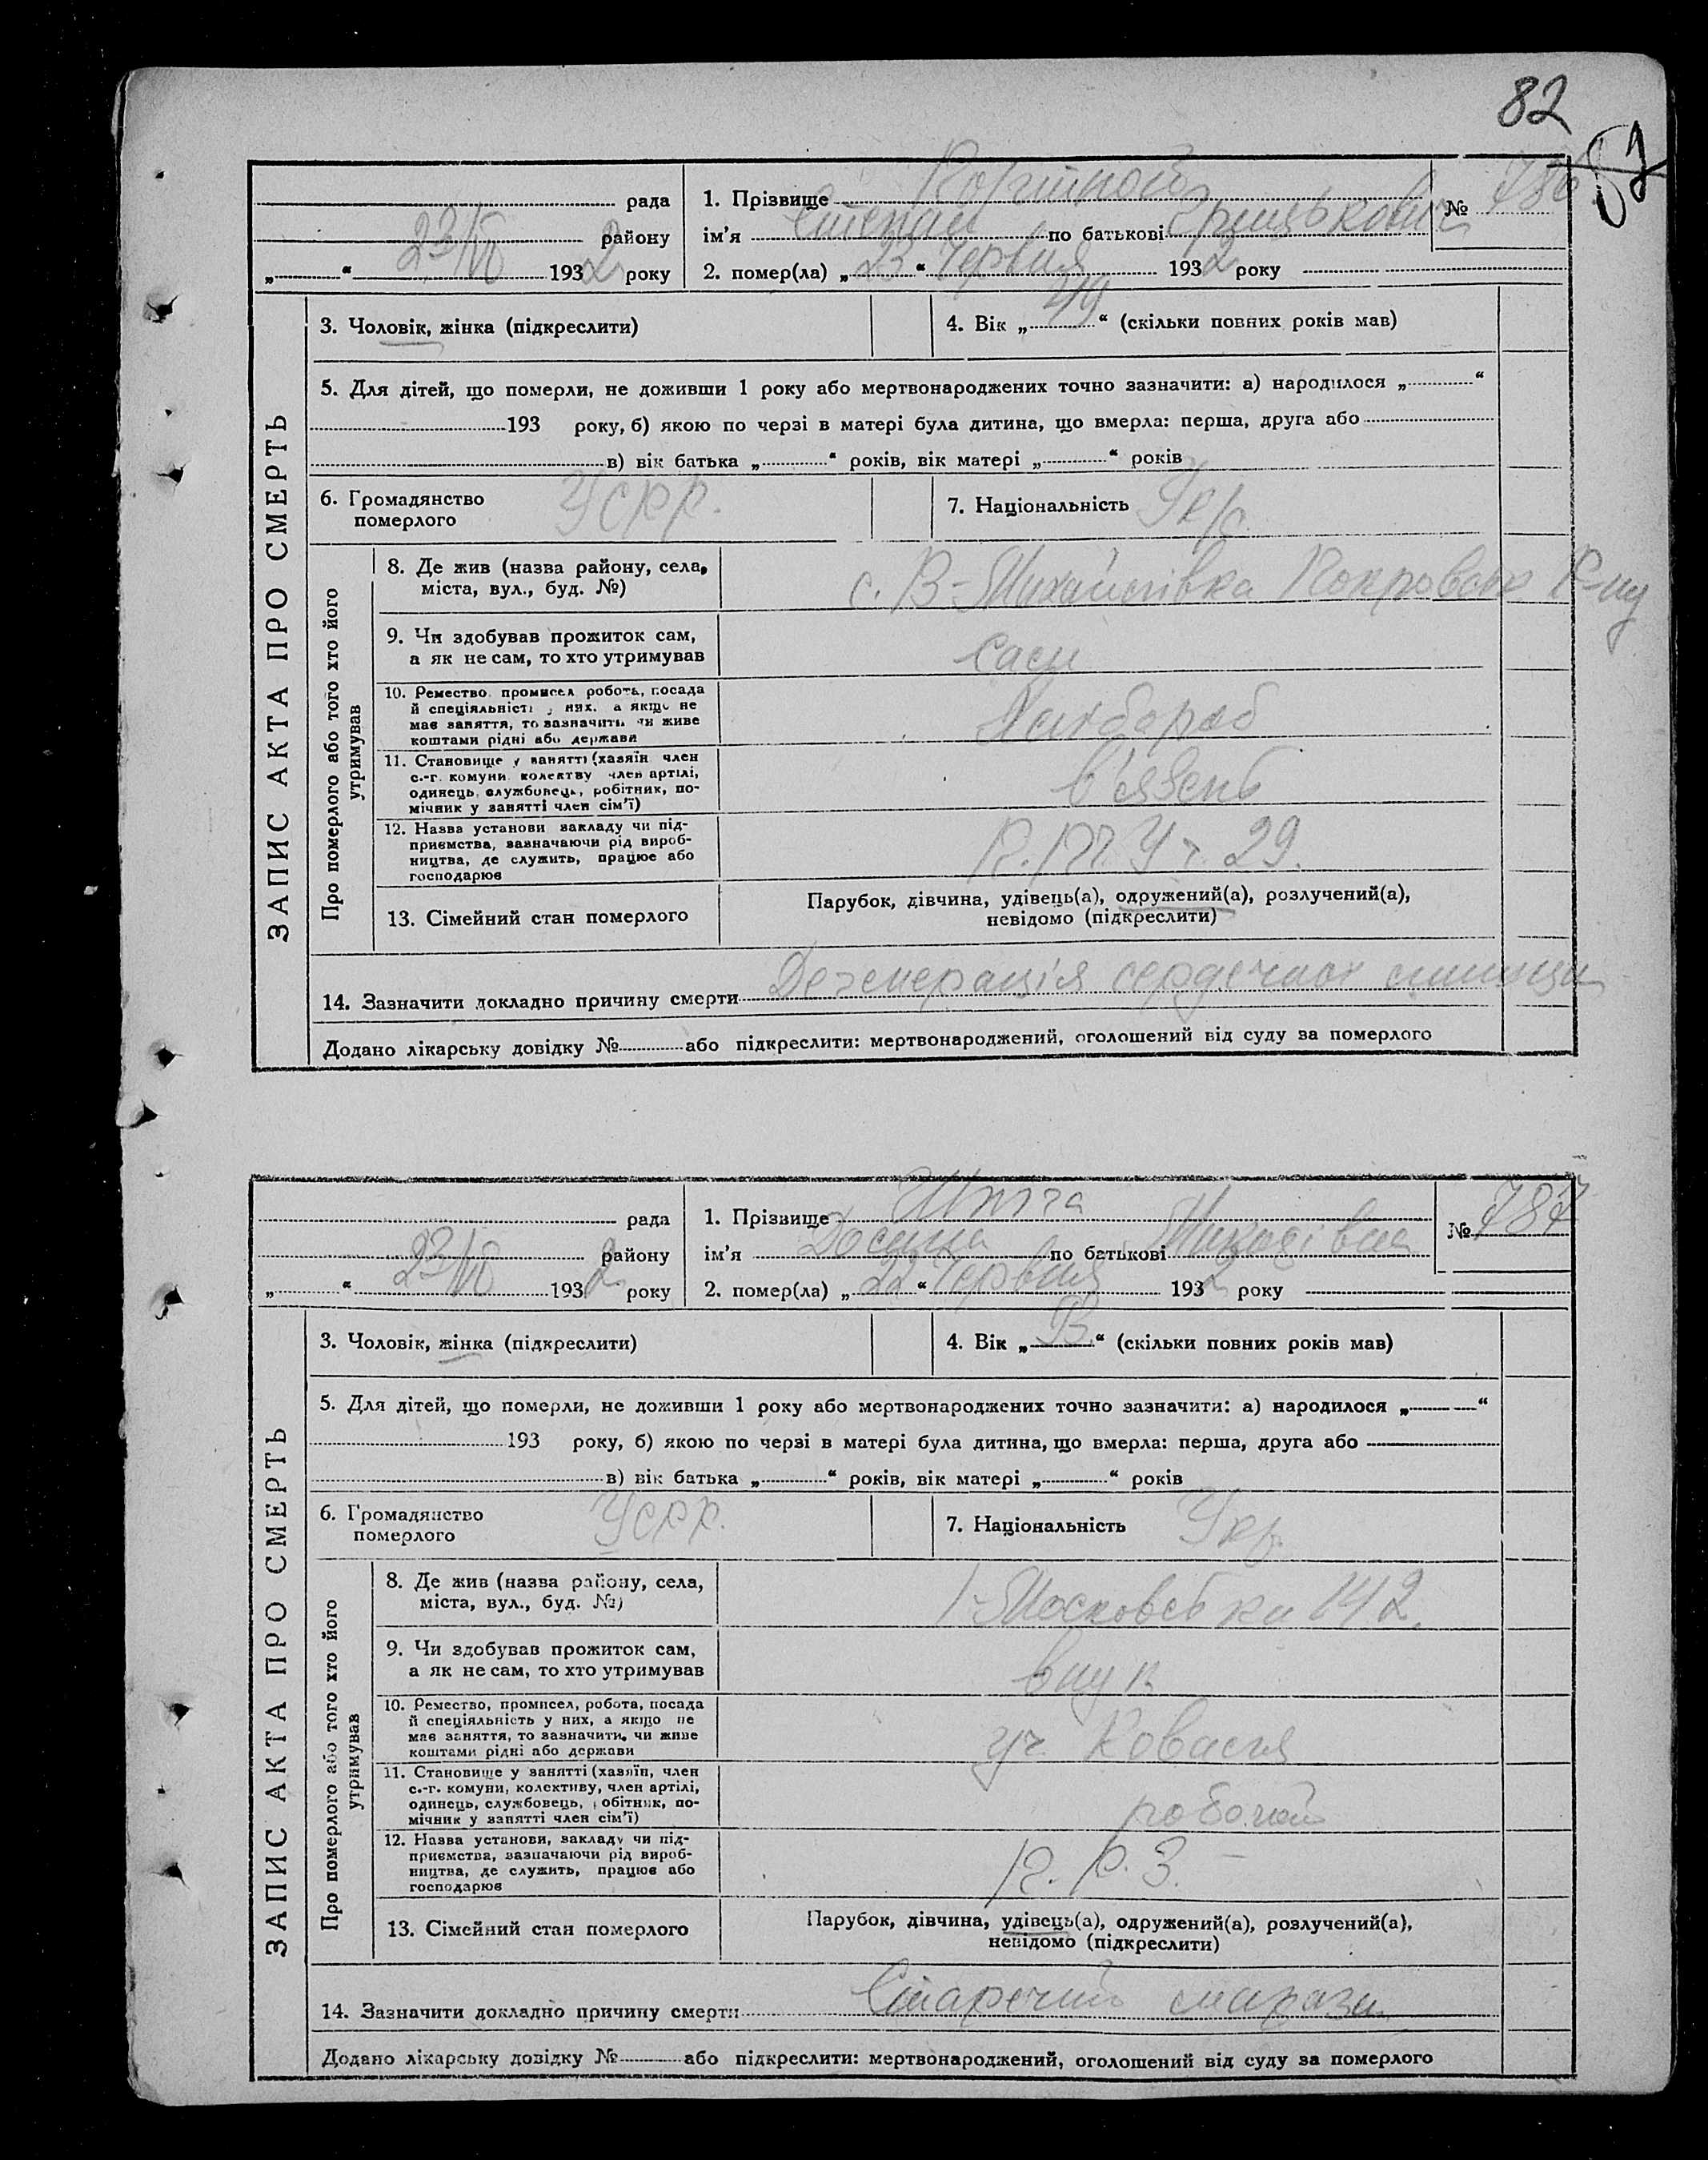 82
рада
району
„ “ 23/VI 1932 року
1. Прізвище
ім'я Степан по батькові Грицькович
2. помер(ла) „23“ Червня 1932 року
№ 786
ЗАПИС АКТА ПРО СМЕРТЬ
3. Чоловік, жінка (підкреслити)
4. Вік „49“ (скільки повних років мав)
5. Для дітей, що померли, не доживши 1 року або мертвонароджених точно зазначити: а) народилося „ “
193 року, б) якою по черзі в матері була дитина, що вмерла: перша, друга або
в) вік батька „ “ років, вік матері „ “ років
6. Громадянство
померлого
УСРР.
7. Національність Укр.
Про померлого або того хто його
утримував
8. Де жив (назва району, села,
міста, вул., буд. №)
с. В-Михайлівка Покровськ Р-ну
9. Чи здобував прожиток сам,
а як не сам, то хто утримував
сам
10. Ремество, промисел, робота, посада
й спеціяльність у них, а якщо не
має заняття, то зазначити, чи живе
коштами рідні або держави
Хлібороб
11. Становище у занятті (хазяїн, член
с.-г. комуни, колективу, член артілі,
одинець, службовець, робітник, по-
мічник у занятті член сім'ї)
в'язень
12. Назва установи, закладу чи під-
приємства, зазначаючи рід вироб-
ництва, де служить, працює або
господарює
29.
13. Сімейний стан померлого
Парубок, дівчина, удівець(а), одружений(а), розлучений(а),
невідомо (підкреслити)
14. Зазначити докладно причину смерти Дегенерація сердечної
Додано лікарську довідку № або підкреслити: мертвонароджений, оголошений від суду за померлого
рада
району
„ “ 23/VI 1932 року
1. Прізвище
ім'я по батькові
2. помер(ла) „22“ Червня 1932 року
№ 787
ЗАПИС АКТА ПРО СМЕРТЬ
3. Чоловік, жінка (підкреслити)
4. Вік „ “ (скільки повних років мав)
5. Для дітей, що померли, не доживши 1 року або мертвонароджених точно зазначити: а) народилося „ “
193 року, б) якою по черзі в матері була дитина, що вмерла: перша, друга або
в) вік батька „ “ років, вік матері „ “ років
6. Громадянство
померлого
УСРР.
7. Національність Укр.
Про померлого або того хто його
утримував
8. Де жив (назва району, села,
міста, вул., буд. №)
142
9. Чи здобував прожиток сам,
а як не сам, то хто утримував
внук
10. Ремество, промисел, робота, посада
й спеціяльність у них, а якщо не
має заняття, то зазначити, чи живе
коштами рідні або держави
уч. Коваля
11. Становище у занятті (хазяїн, член
с.-г. комуни, колективу, член артілі,
одинець, службовець, робітник, по-
мічник у занятті член сім'ї)
робочий
12. Назва установи, закладу чи під-
приємства, зазначаючи рід вироб-
ництва, де служить, працює або
господарює
13. Сімейний стан померлого
Парубок, дівчина, удівець(а), одружений(а), розлучений(а),
невідомо (підкреслити)
14. Зазначити докладно причину смерти Старечий маразм
Додано лікарську довідку № або підкреслити: мертвонароджений, оголошений від суду за померлого